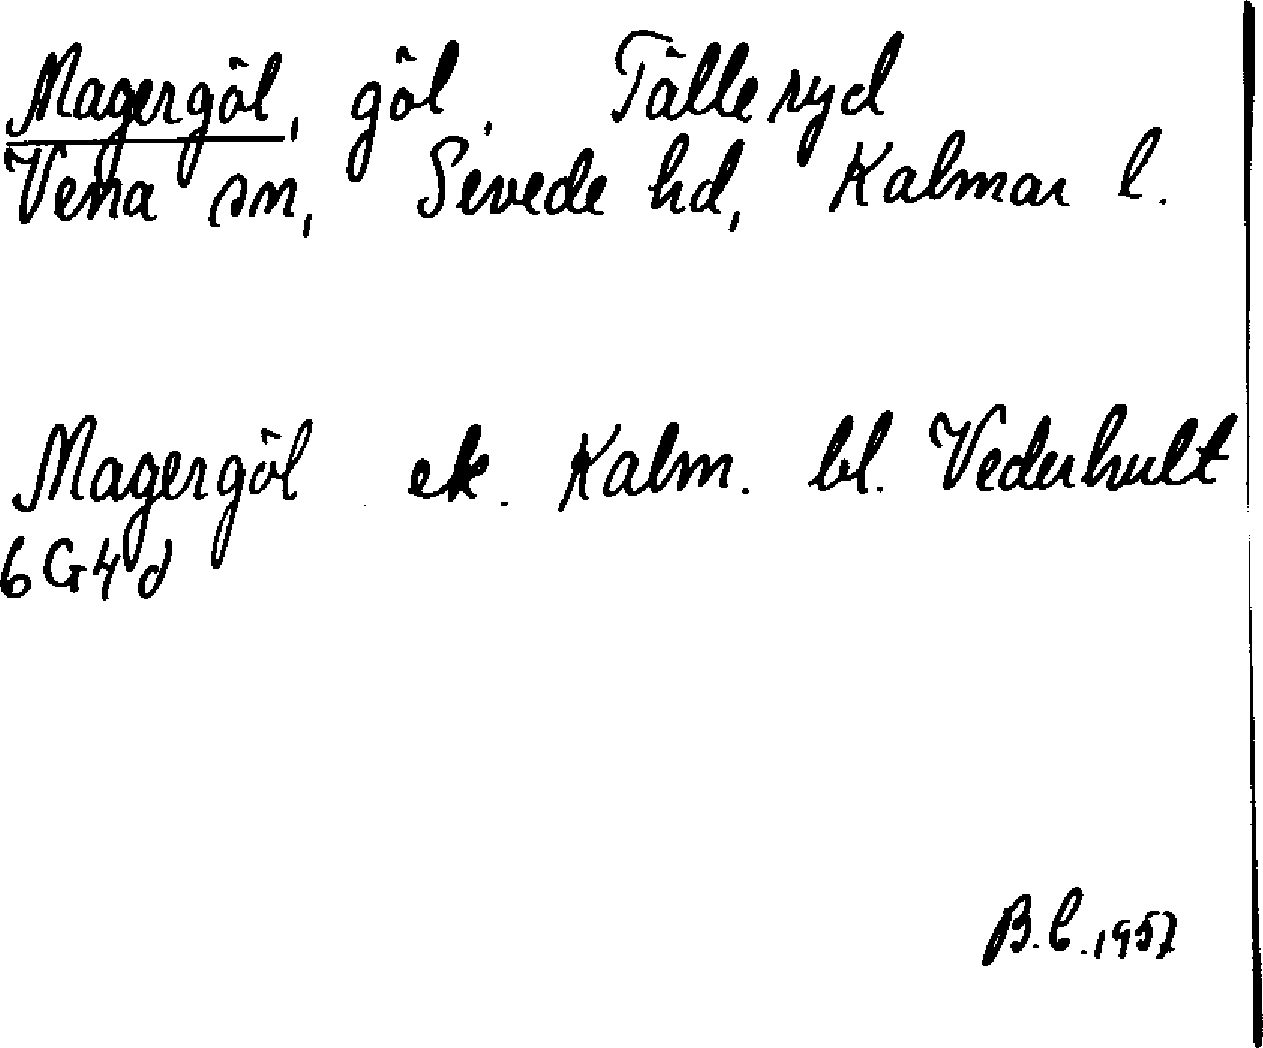 Magergöl, göl. Tälleryd
Vena sn, Sevede hd, Kalmar l.
Magergöl ek. Kalm. bl. Vederhult
6G4d
B.C. 1957